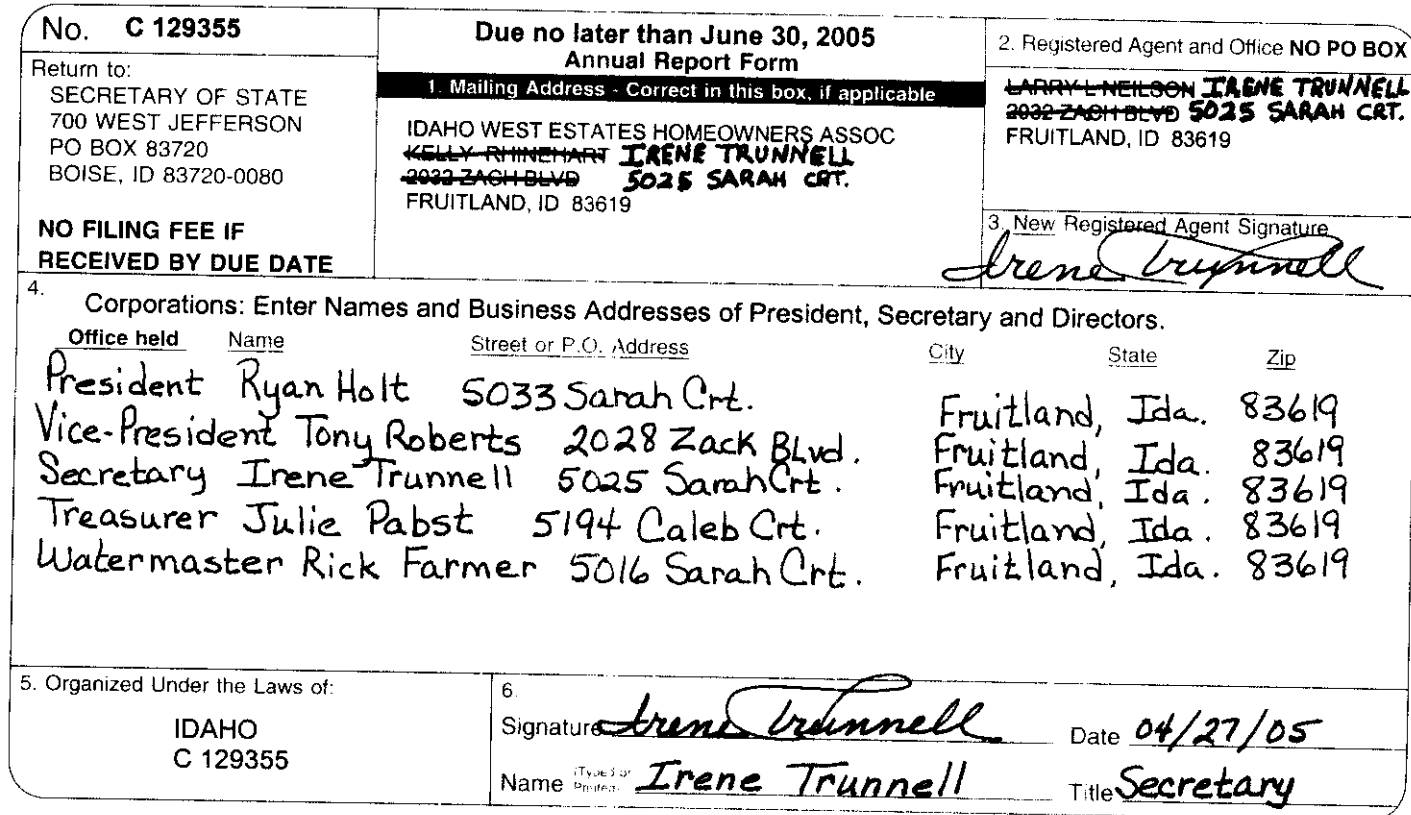 No. C 129355
Return to:
SECRETARY OF STATE
700 WEST JEFFERSON
PO BOX 83720
BOISE, ID 83720-0080
NO FILING FEE IF
RECEIVED BY DUE DATE
Due no later than June 30, 2005
Annual Report Form
1. Mailing Address - Correct in this box, if applicable
IDAHO WEST ESTATES HOMEOWNERS ASSOC
KELLY RHINEHART IRENE TRUNNELL
2032 ZACH BLVD 5025 SARAH CRT.
FRUITLAND, ID 83619
2. Registered Agent and Office NO PO BOX
LARRY L NEILSON IRENE TRUNNELL
2032 ZACH BLVD 5025 SARAH CRT.
FRUITLAND, ID 83619
3. New Registered Agent Signature
Irene Trunnell
4. Corporations: Enter Names and Business Addresses of President, Secretary and Directors.
Office held Name Street or P.O. Address City State Zip
President Ryan Holt 5033 Sarah Crt. Fruitland, Ida. 83619
Vice-President Tony Roberts 2028 Zack BLvd. Fruitland, Ida. 83619
Secretary Irene Trunnell 5025 Sarah Crt. Fruitland, Ida. 83619
Treasurer Julie Pabst 5194 Caleb Crt. Fruitland, Ida. 83619
Watermaster Rick Farmer 5016 Sarah Crt. Fruitland, Ida. 83619
5. Organized Under the Laws of:
IDAHO
C 129355
6.
Signature Irene Trunnell Date 04/27/05
Name (Typed or Printed) Irene Trunnell Title Secretary